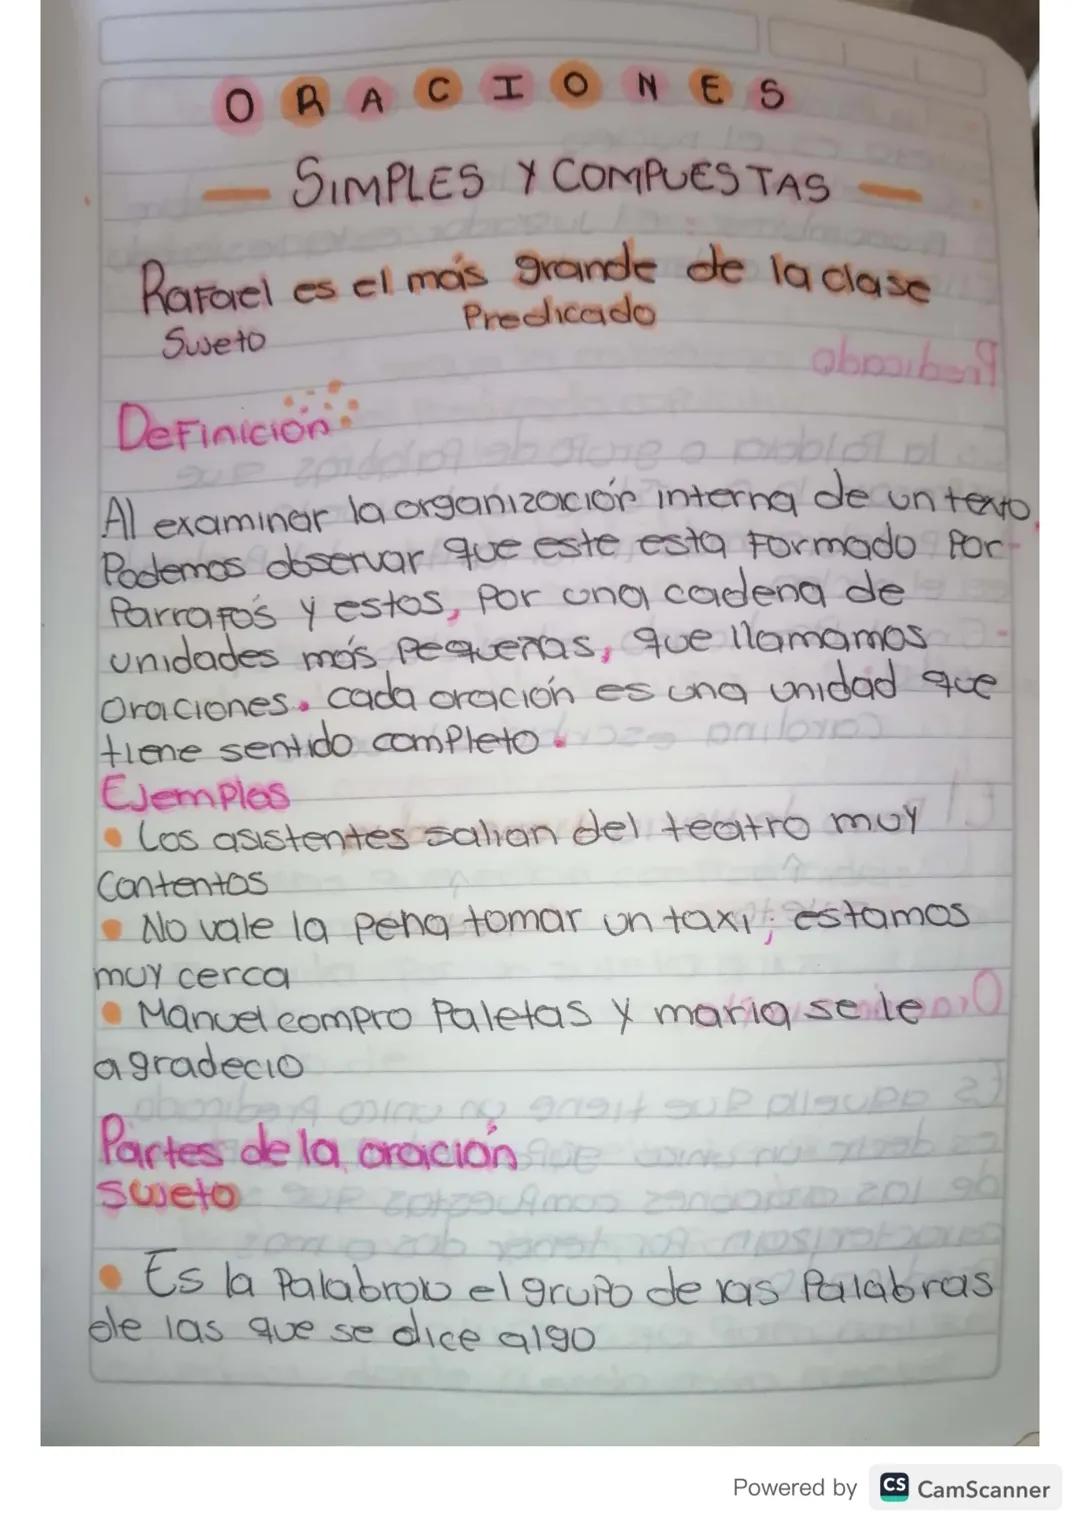 ORACIONES
SIMPLES Y COMPUESTAS
Rafael es el más grande de la clase
Predicado
Sujeto
Definición
Al examinar la organización interna de un texto,
Podemos observar que este esta Formado Por
Parrafós y estos, Por una cadena de
unidades más Pequeñas, que llamamos
Oraciones. cada oración es una unidad que
tiene sentido completo.
Ejemplos
• Los asistentes salian del teatro muy
Contentos
• No vale la pena tomar un taxi; estamos
muy cerca
• Manuel compro Paletas y maria se le
agradecio
Partes de la oración
sujeto
• Es la Palabra o el grupo de las Palabras
de las que se dice algo
Powered by CS CamScanner